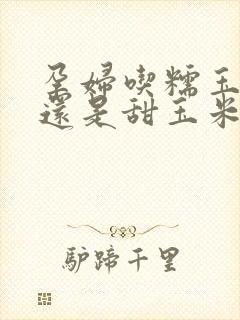 孕婦喫糯玉
還是甜玉米
驢蹄千里